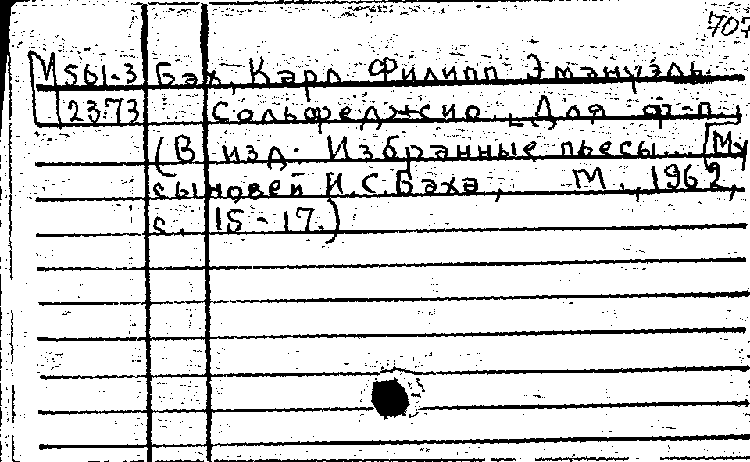 707
М 561-3 Бах, Карл Филипп Эмануэль.
2373 Сольфеджио. [Для ф-п.]
(В изд: Избранные пьесы.
сыновей И.С.Баха, М., 1962,
с. 15-17.)